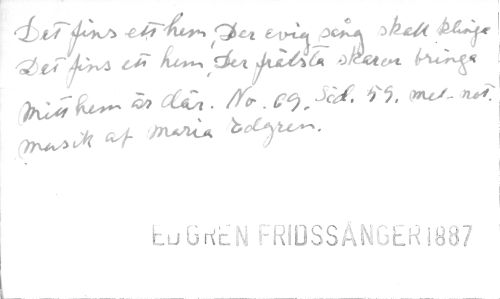 Det fins ett hem, Der evig sång skall klinga
Det fins ett hem, Der frälsta skaror bringa
Mitt hem är där. No. 69. Sid. 59. mel. not.
musik af Maria Edgren.
EDGREN FRIDSSÅNGER 1887